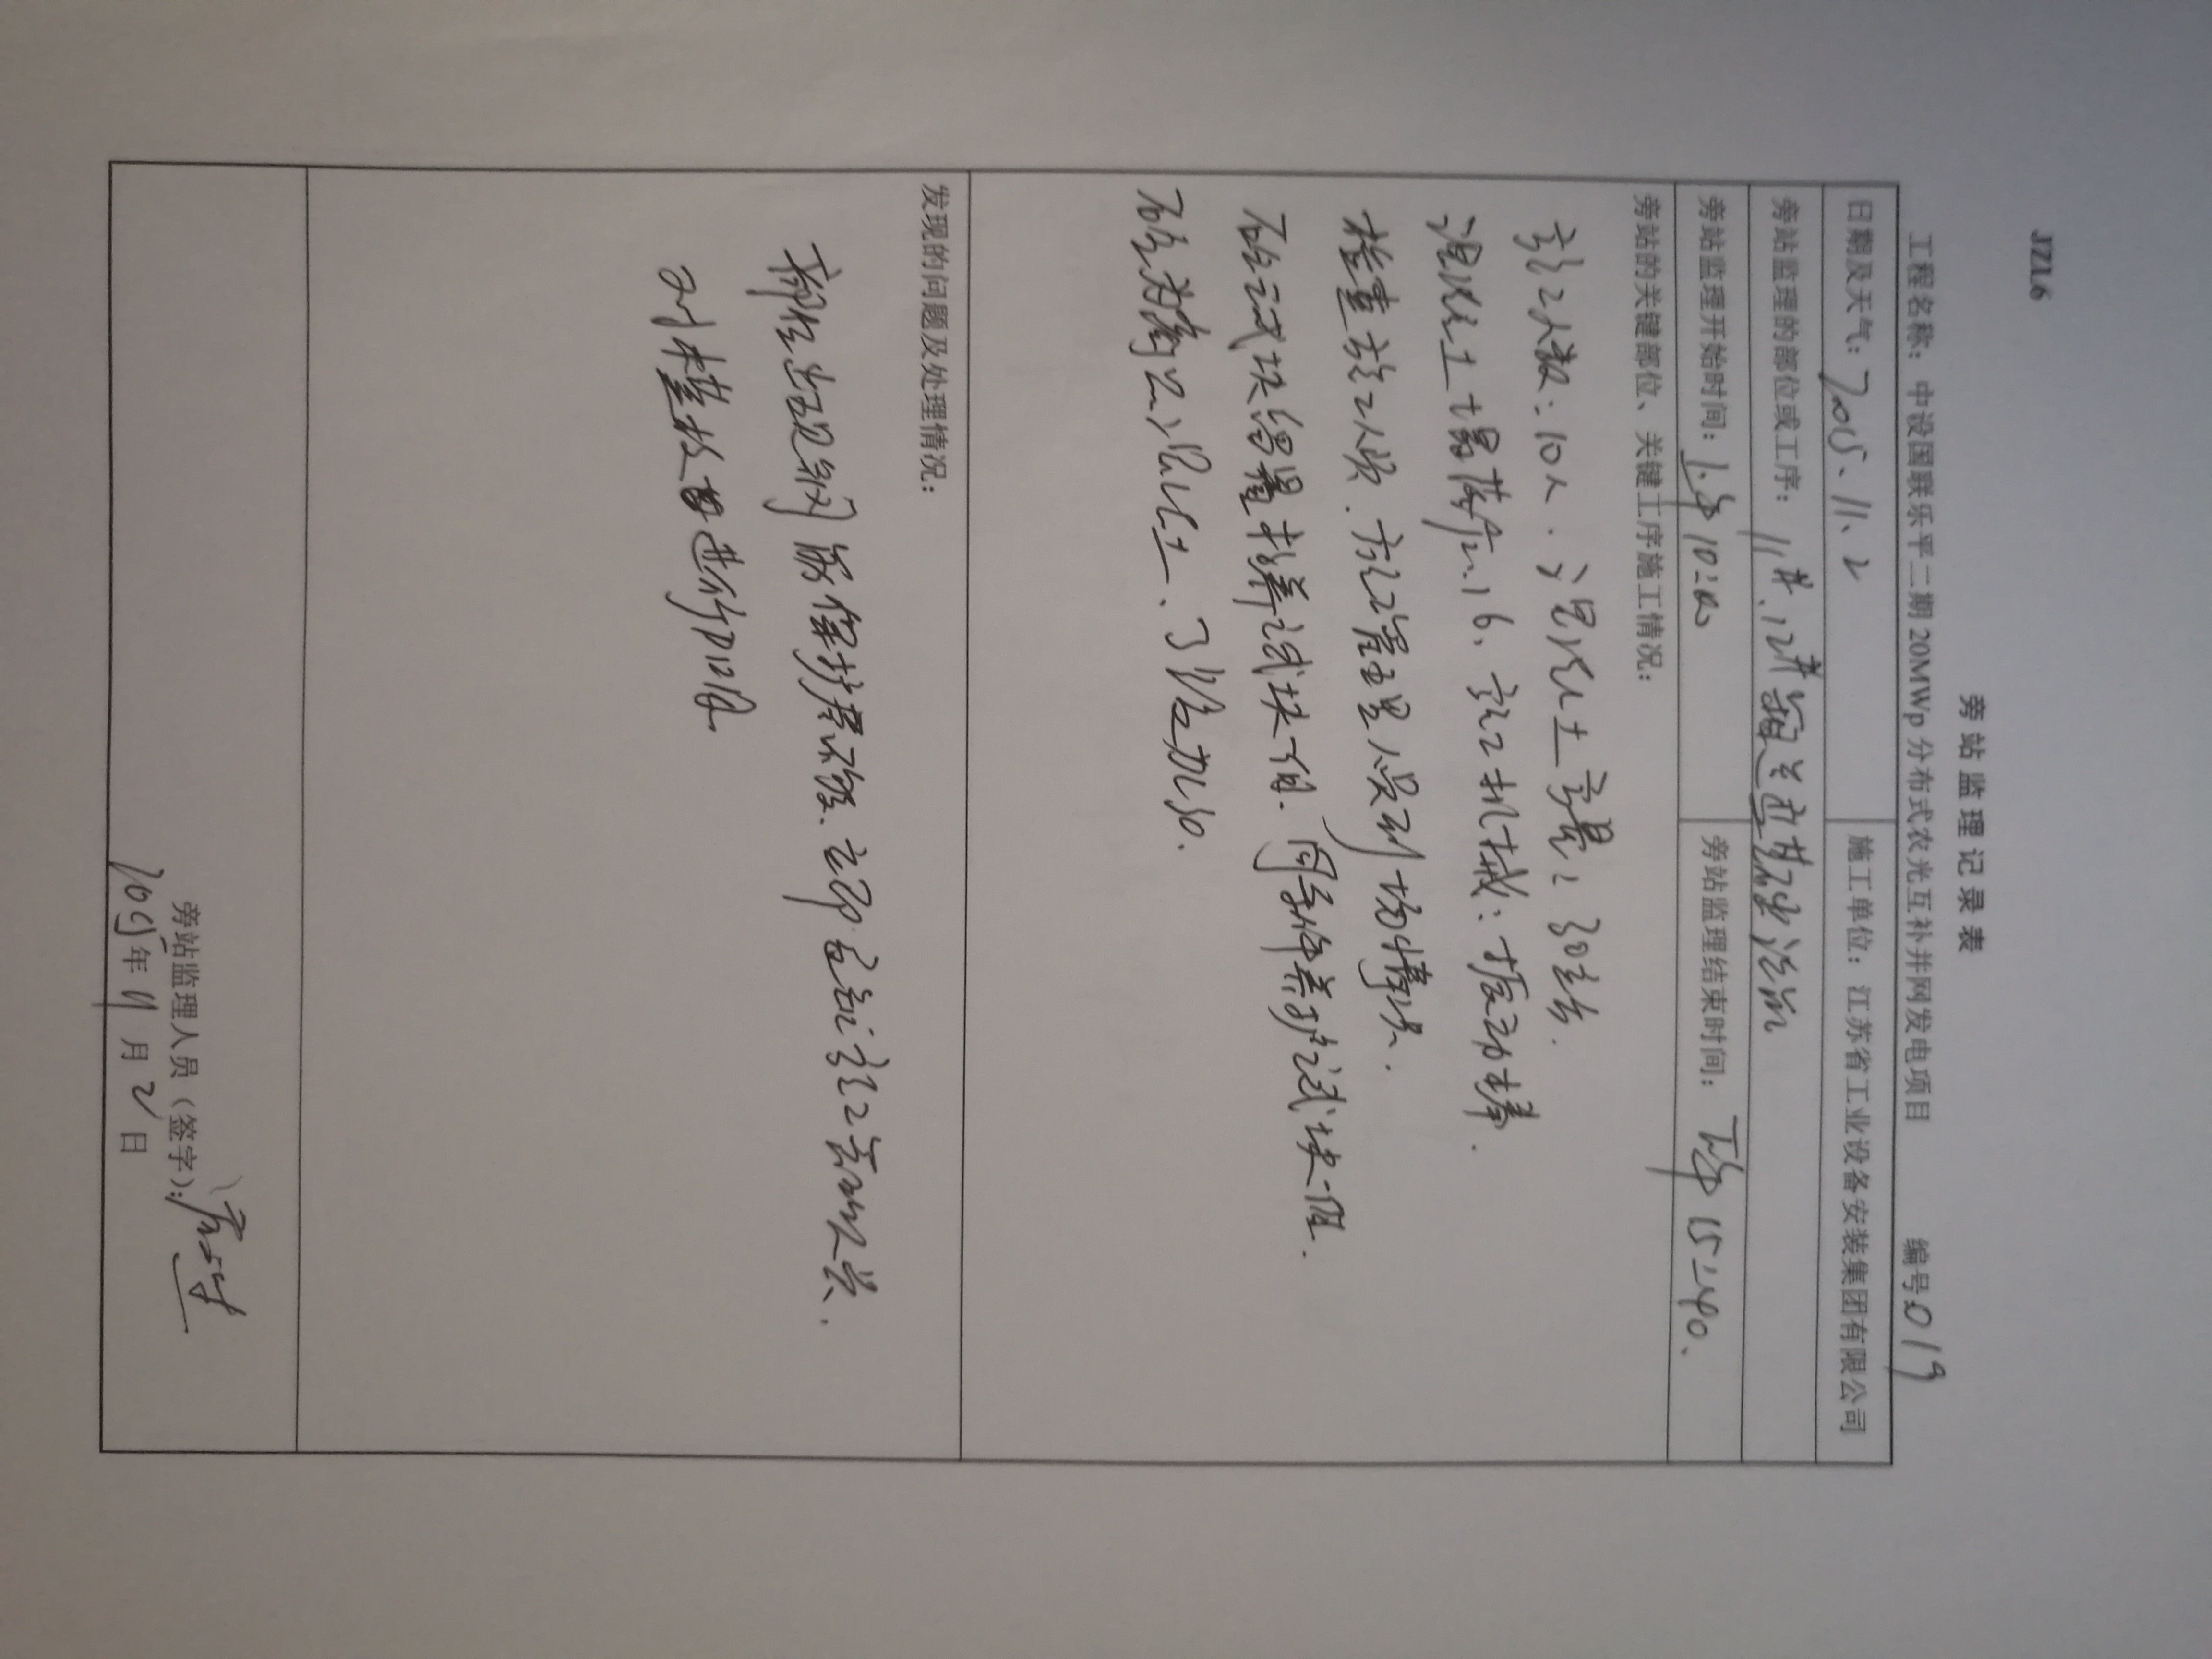 JZL6
旁站监理记录表
工程名称：中设国联乐平二期20MWp分布式农光互补并网发电项目 编号:019
日期及天气：2015、11、2 施工单位：江苏省工业设备安装集团有限公司
旁站监理的部位或工序：11#、12#箱逆变基础浇筑
旁站监理开始时间：上午10:20 旁站监理结束时间：下午15:40、
旁站的关键部位、关键工序施工情况：
施工人数：10人．混凝土方量：30
混凝土塌落度：16、施工机械：振动棒．
检查施工人员．施工管理人员到场情况．
砼试块留置标养试块一组．同条件养护试块一组．
砼为商品混凝土、
发现的问题及处理情况：
部位出现钢筋保护层不够、立即通知施工方
对模板进行加固
旁站监理人员（签字）：
2015年11月2日